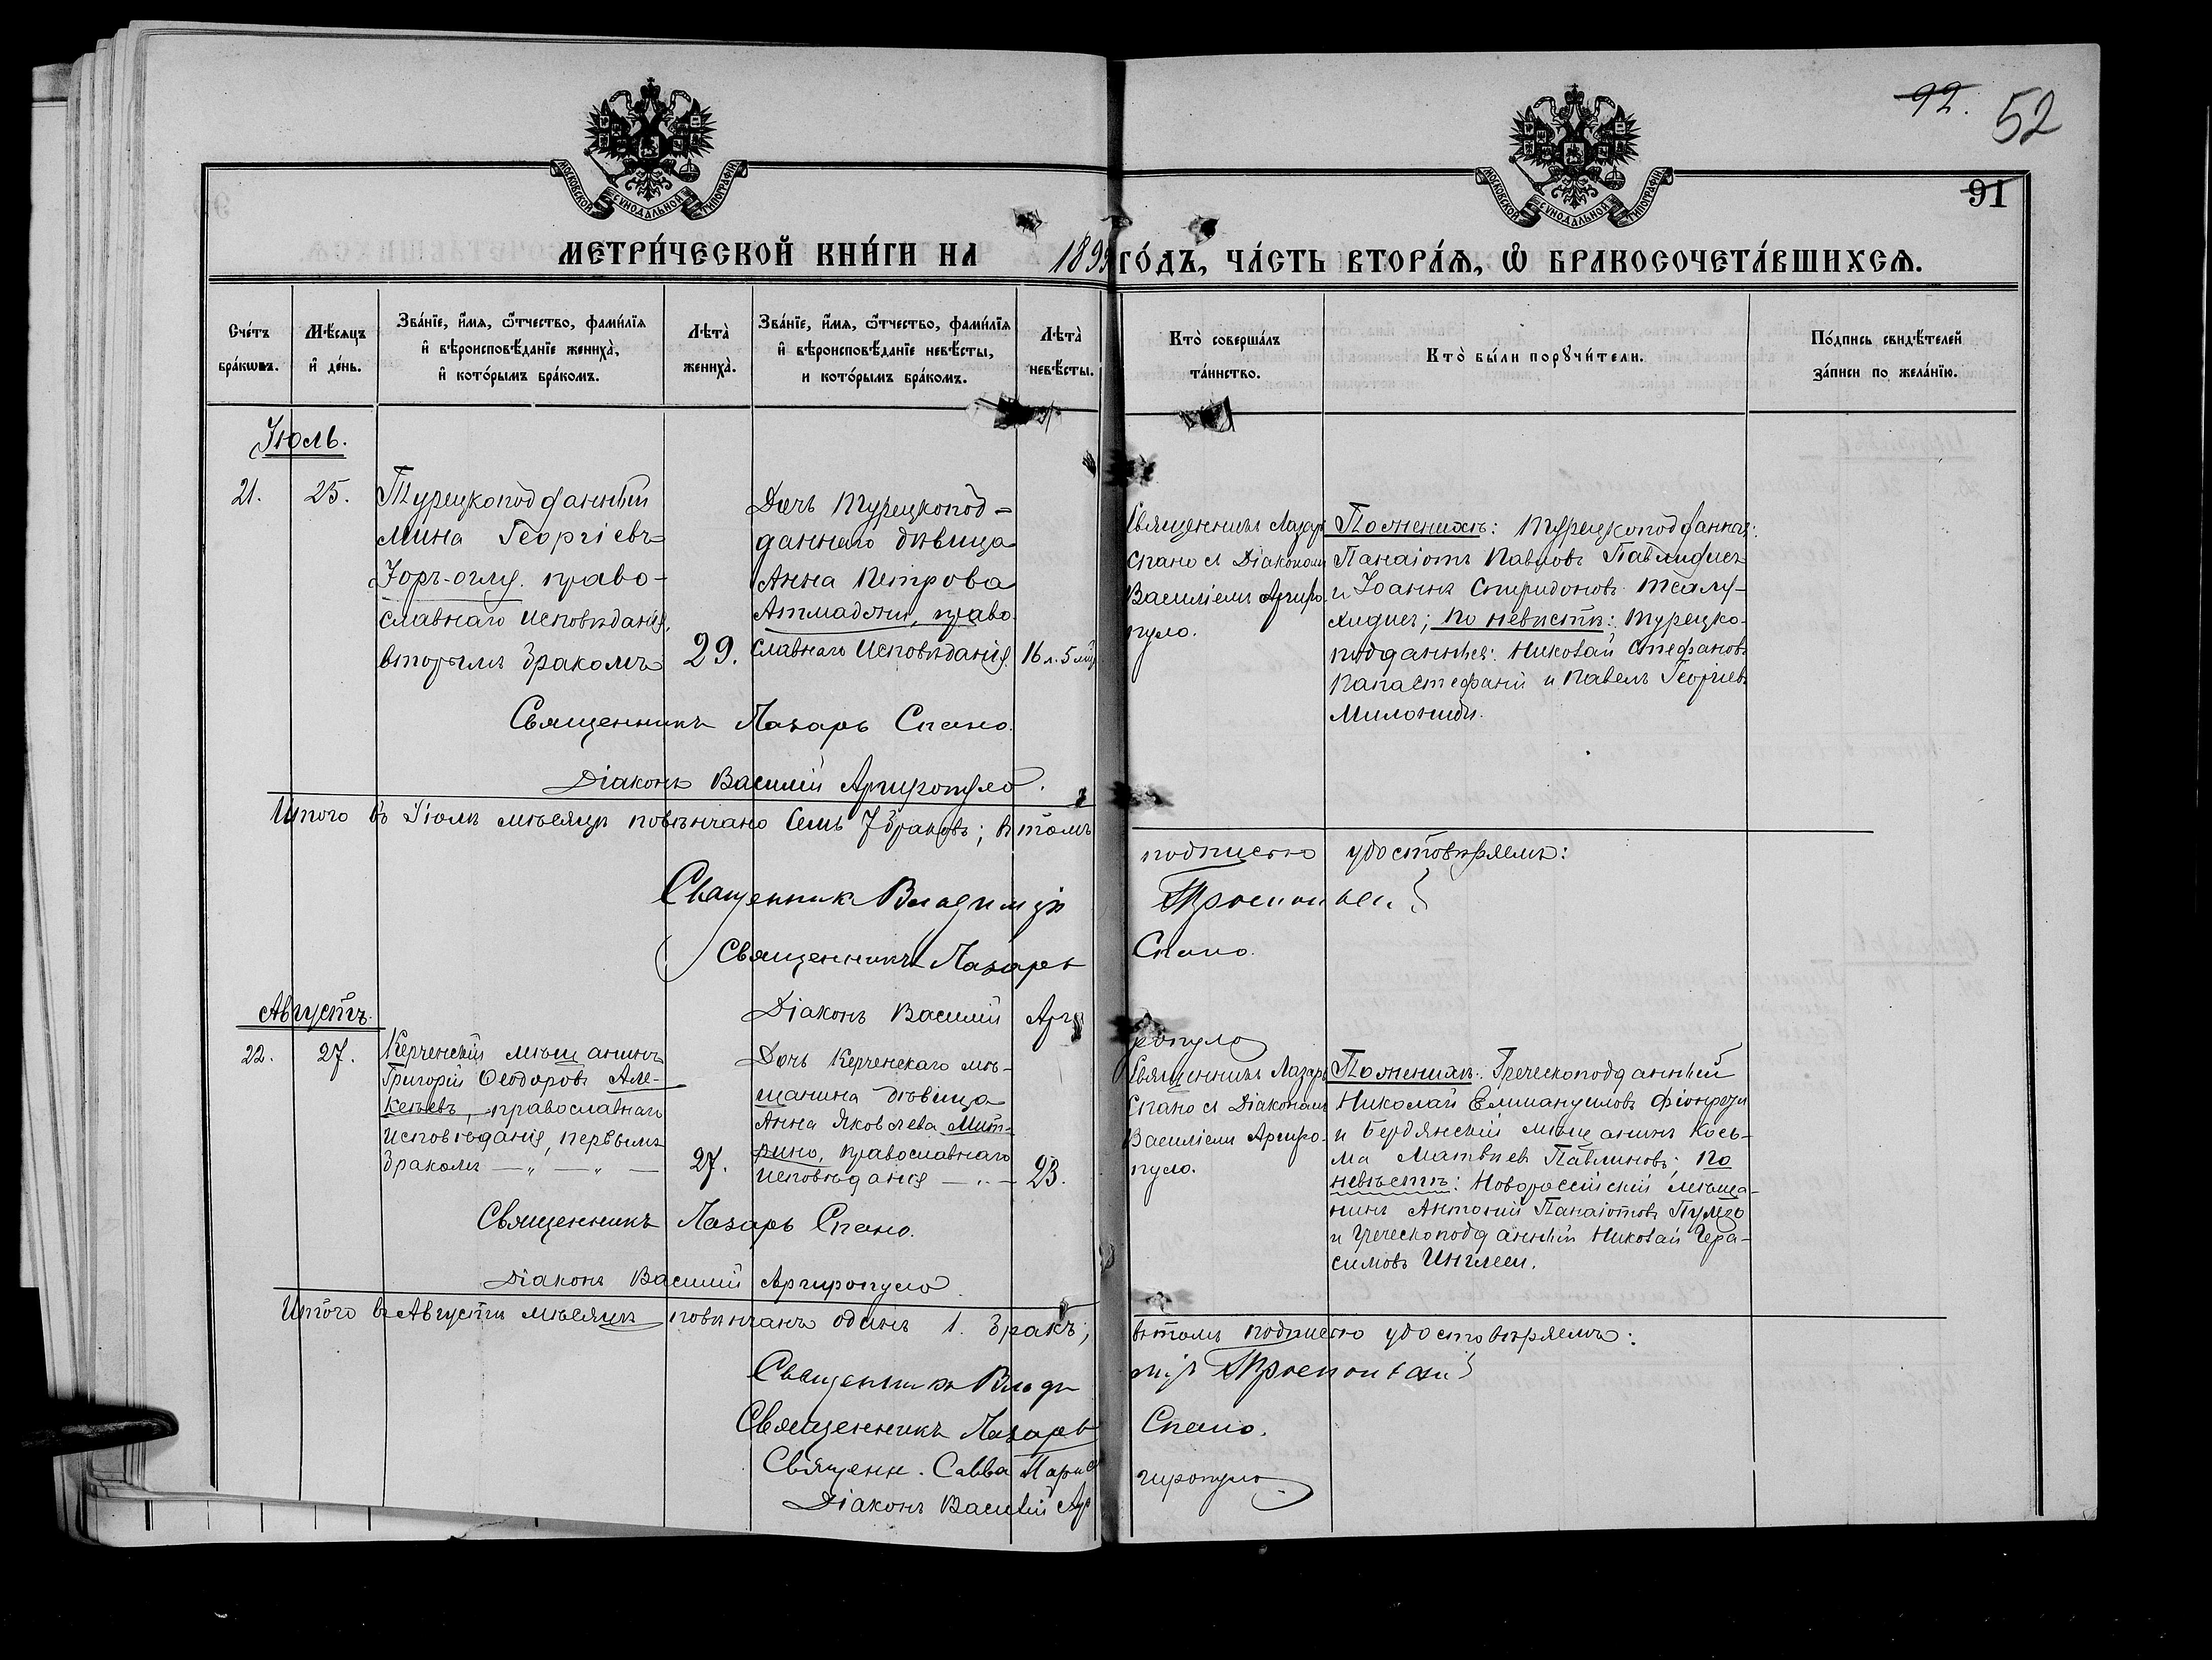 92. 52
91
МОСКОВСКОЙ СѴНОДАЛЬНОЙ ТИПОГРАФІИ
МОСКОВСКОЙ СѴНОДАЛЬНОЙ ТИПОГРАФІИ
МЕТРИ́ЧЕСКОЙ КНИ́ГИ НА 1895 ГО́ДЪ, ЧА́СТЬ ВТОРА́Ѧ, Ѽ БРАКОСОЧЕТА́ВШИХСѦ.
Сче́тъ
бра́кѡвъ.
Мѣ́сяцъ
и҆ де́нь.
Зва́нїе, и҆́мѧ, ѻ҆́тчество, фамѝлїѧ
и҆ вѣроисповѣ́данїе жениха̀,
и҆ кото́рымъ бра́комъ.
Лѣта̀
жениха̀.
Зва́нїе, и҆́мѧ, ѻ҆́тчество, фамѝлїѧ
и҆ вѣроисповѣ́данїе невѣ́сты,
и кото́рымъ бра́комъ.
Лѣта̀
невѣ́сты.
Кто̀ соверша́лъ
та́инство.
Кто̀ бы́ли порꙋчи́тели.
По́дпись свидѣ́телей
за́писи по жела́нїю.
Іюль.
21.
25.
Турецкоподданный
Мина Георгіевъ
Іоръ-оглу. право-
славнаго исповѣданія,
вторымъ бракомъ
29.
Дочь турецкопод=
даннаго дѣвица
Анна Петрова
право-
славнаго исповѣданія
16 л. 5
Священникъ Лазарь
Спано съ Діакономъ
Василіемъ Аргиро-
пуло.
По женихѣ: турецкоподданные:
Панаіотъ Павловъ Павлидисъ
и Іоаннъ Спиридоновъ
по невѣстѣ: турецко-
подданные: Николай Стефановъ
Папастефани и Павелъ Георгіевъ
Милониди.
Священникъ Лазарь Спано.
Діаконъ Василій Аргиропуло.
Итого въ Іюлѣ мѣсяцѣ повѣнчано семь 7 браковъ; въ томъ подписью удостовѣряемъ:
Священникъ Владиміръ
Священникъ Лазарь Спано.
Діаконъ Василій Аргиропуло
Августъ.
22.
27.
Керченскій мѣщанинъ
Григорій Ѳеодоровъ Але-
православнаго
исповѣданія, первымъ
бракомъ — „ — „ —
27.
Дочь Керченскаго мѣ-
щанина дѣвица
Анна Яковлева Мит-
рино, православнаго
исповѣданія — „ —
23.
Священникъ Лазарь
Спано съ Діакономъ
Василіемъ Аргиро-
пуло.
По женихѣ: Греческоподданный
Николай Еммануиловъ
и Бердянскій мѣщанинъ Козь-
ма Матвѣевъ Павлиновъ; по
невѣстѣ: Новороссійскій мѣща-
нинъ Антоній Панаіотовъ
и Греческоподданный Николай Гера-
симовъ Инглеси.
Священникъ Лазарь Спано.
Діаконъ Василій Аргиропуло.
Итого въ Августѣ мѣсяцѣ повѣнчанъ одинъ 1. бракъ; въ томъ подписью удостовѣряемъ:
Священникъ Владиміръ
Священникъ Лазарь Спано.
Священн. Савва
Діаконъ Василій Аргиропуло